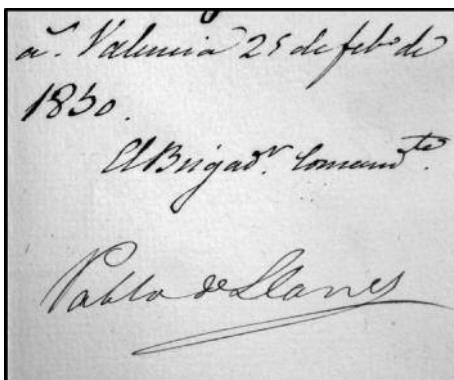 aª. Valencia 25 de febº de
1850.
El Brigadr. Comandte.
Pablo de Llanes